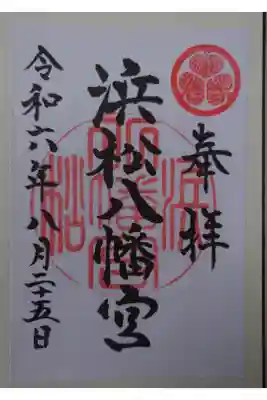 奉拝
浜松八幡宮
令和六年八月二十五日